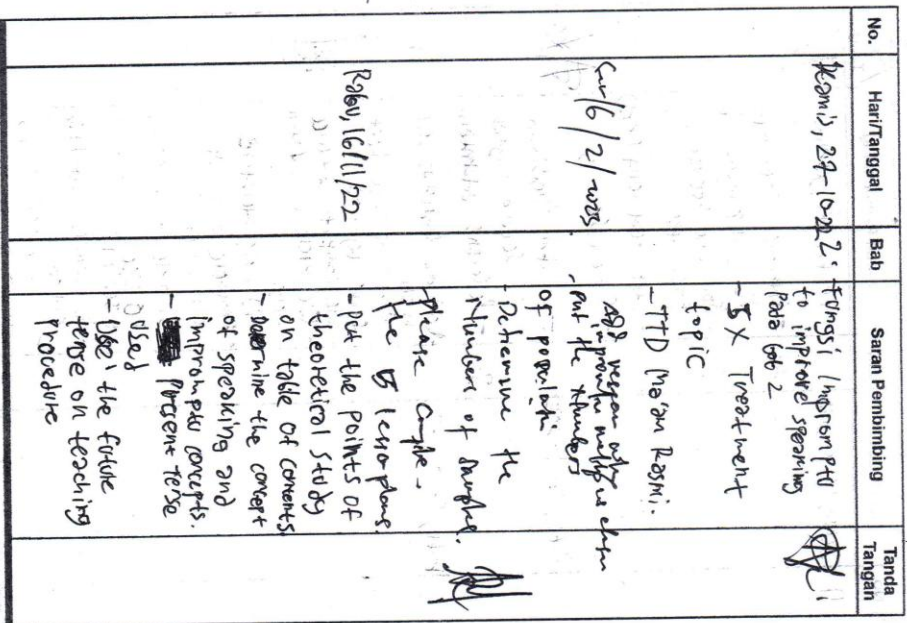 No. Hari/Tanggal Bab Saran Pembimbing Tanda Tangan
Kamis, 27-10-22 2. Fungsi Impromptu
to improve speaking
Pada bab 2
- 5X Treatment
topic
- TTD Ma'am Rasmi.
add reason why
impromptu
6/2/
- Put the Numbers
of populati
- Determine the
Numbers of samples.
- Please
the 5 lesson plans
Rabu, 16/11/22
- put the points of
theoretical study
on table of contents
- determine the concept
of speaking and
impromptu concepts.
- present tense
used
- Use the future
tense on teaching
procedure